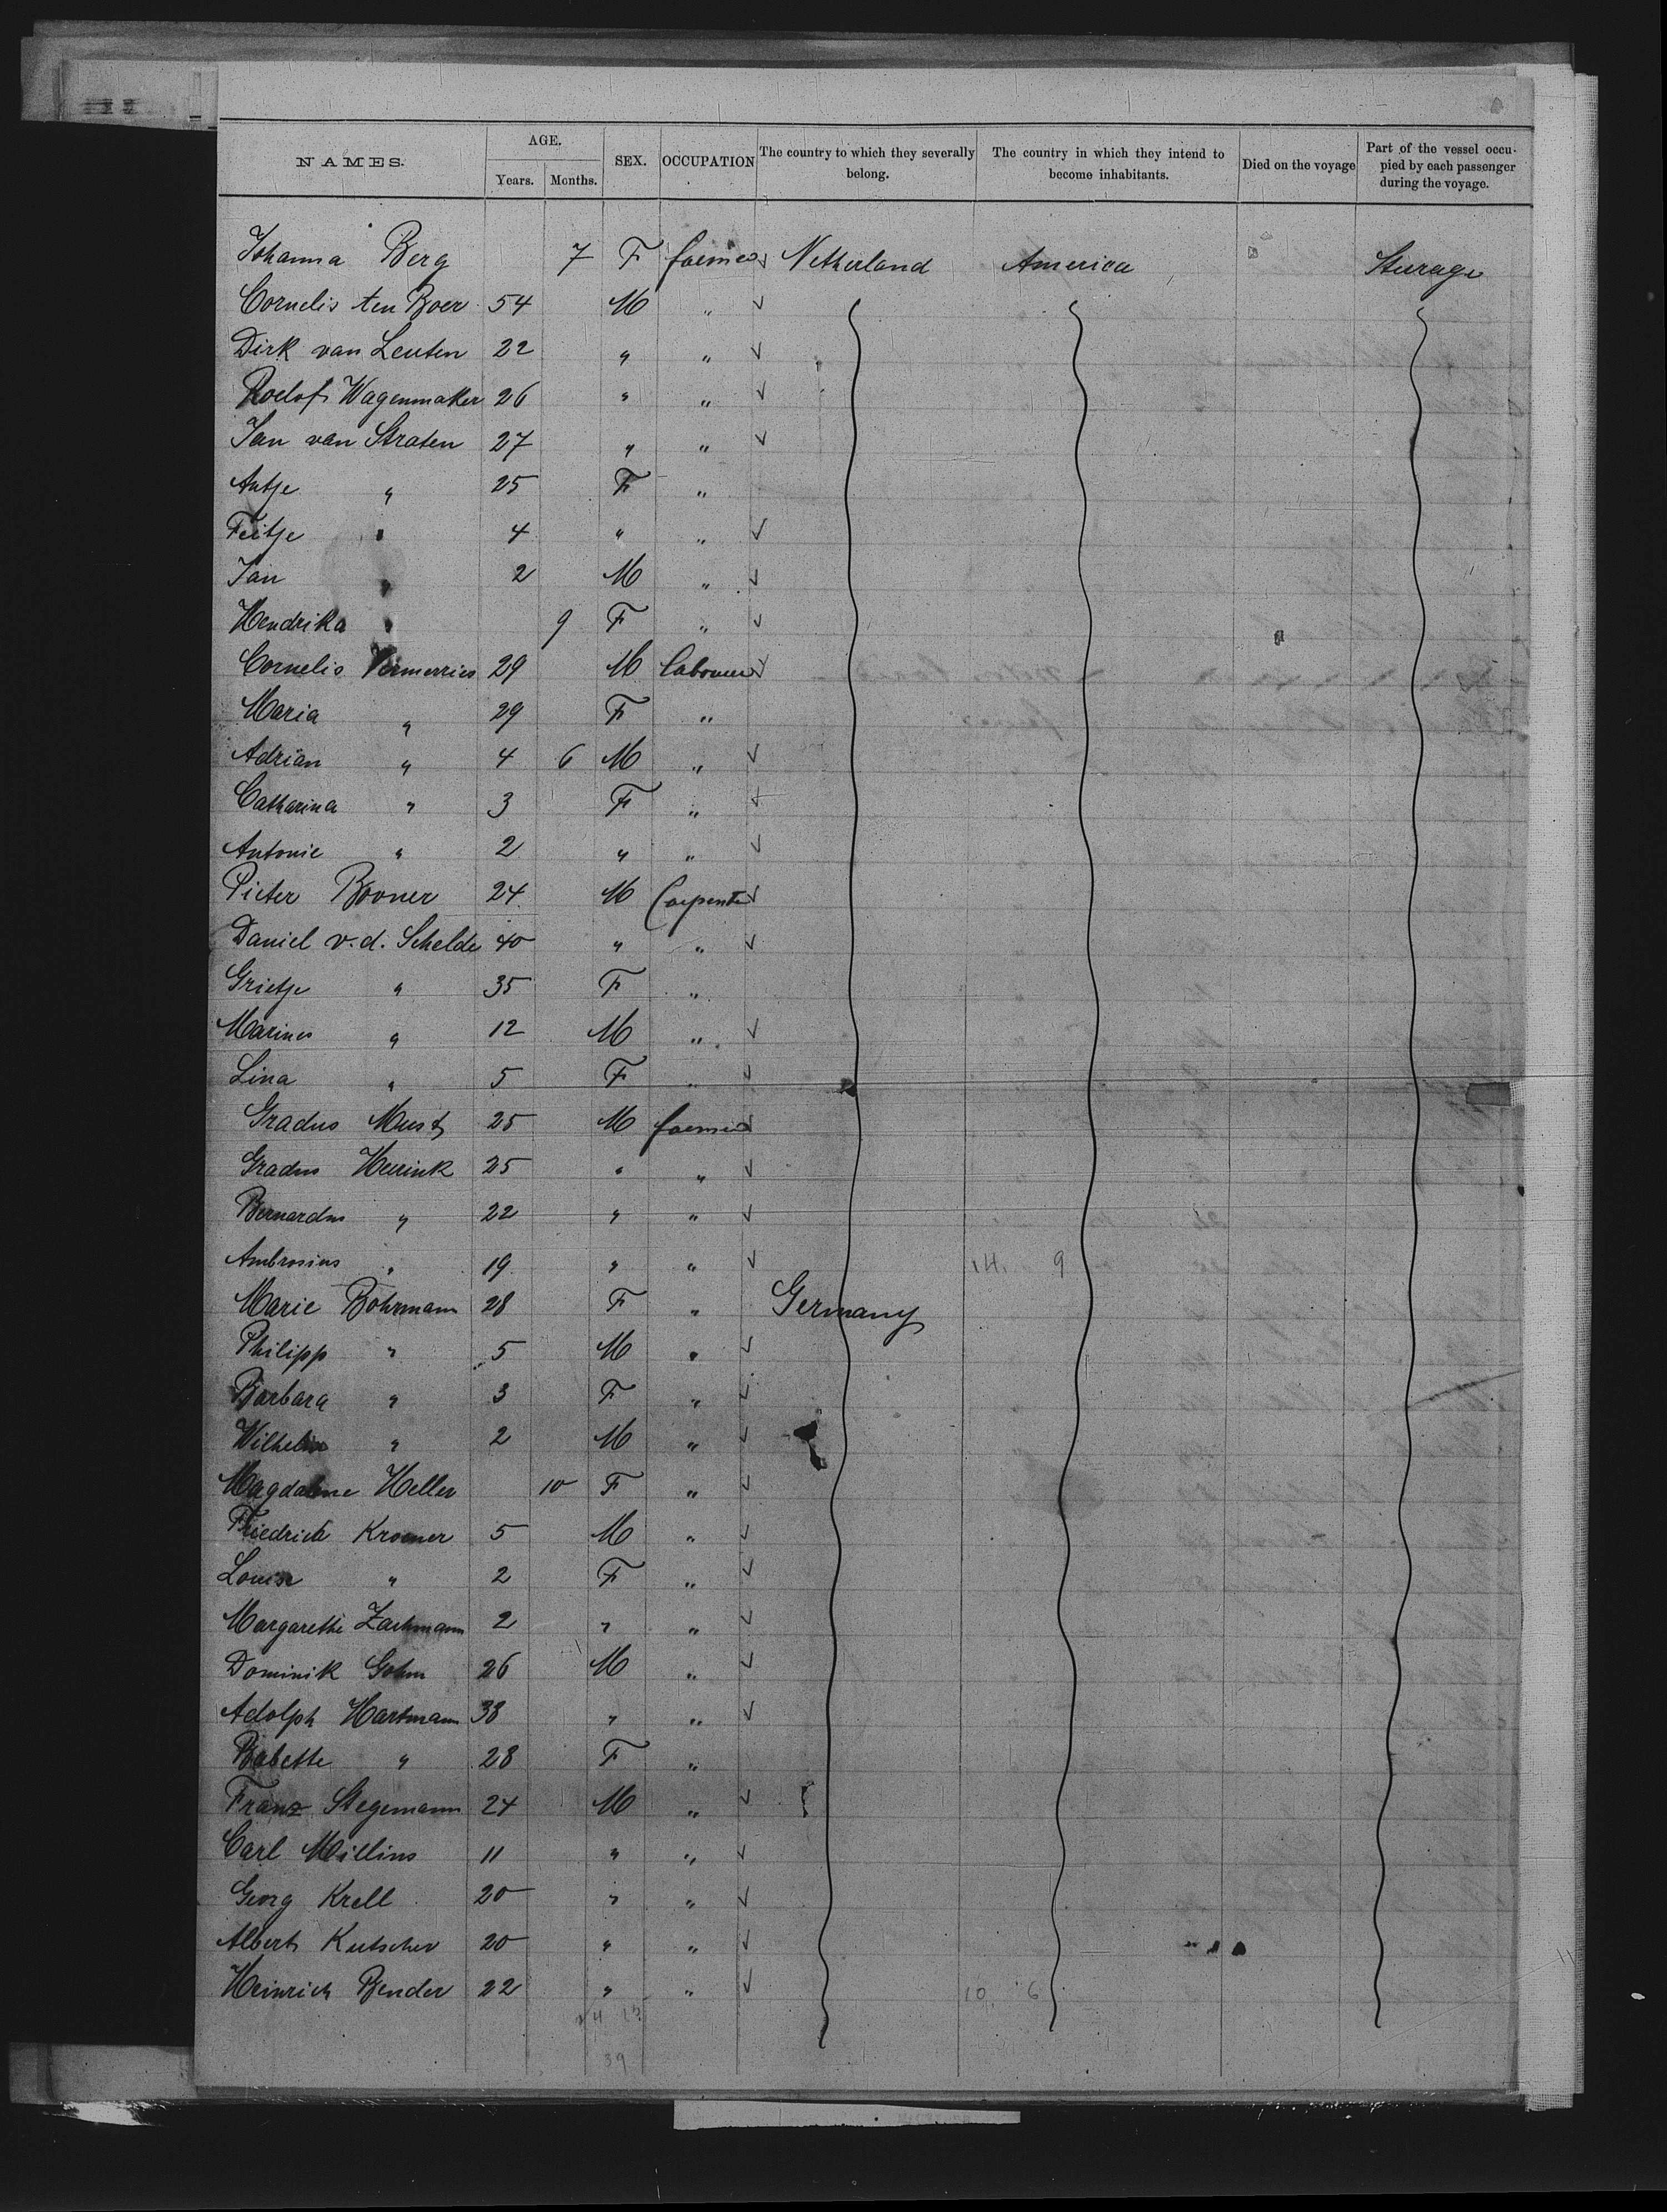 NAMES. AGE. SEX. OCCUPATION The country to which they severally belong. The country in which they intend to become inhabitants. Died on the voyage Part of the vessel occupied by each passenger during the voyage.
Years. Months.
Johanna Berg 7 F farmer Netherland America Steerage
Cornelis ten Boer 54 M "
Dirk van Leuten 22 " "
Roelof Wagenmaker 26 " "
Jan van Straten 27 " "
Antje " 25 F "
Feitje " 4 " "
Jan " 2 M "
Hendrika " 9 F "
Cornelis Vermerries 29 M labourer
Maria " 29 F "
Adrian " 4 6 M "
Catharina " 3 F "
Antonie " 2 " "
Pieter Booner 24 M Carpenter
Daniel v.d. Schelde 40 " "
Grietje " 35 F "
Marines " 12 M "
Lina " 5 F "
Gradus Must 25 M farmer
Gradus Heurink 25 " "
Bernardus " 22 " "
Ambrosius " 19 " " 14. 9
Marie Bohrmann 28 F " Germany
Philipp " 5 M "
Barbara " 3 F "
Wilhelm " 2 M "
Magdalene Heller 10 F "
Friedrich Kromer 5 M "
Louise " 2 F "
Margarethe Zachmann 2 " "
Dominik Gohm 26 M "
Adolph Hartmann 38 " "
Babette " 28 F "
Franz Stegemann 24 M "
Carl Millins 11 " "
Georg Krell 20 " "
Albert Kutscher 20 " "
Heinrich Bender 22 " " 10 6
39